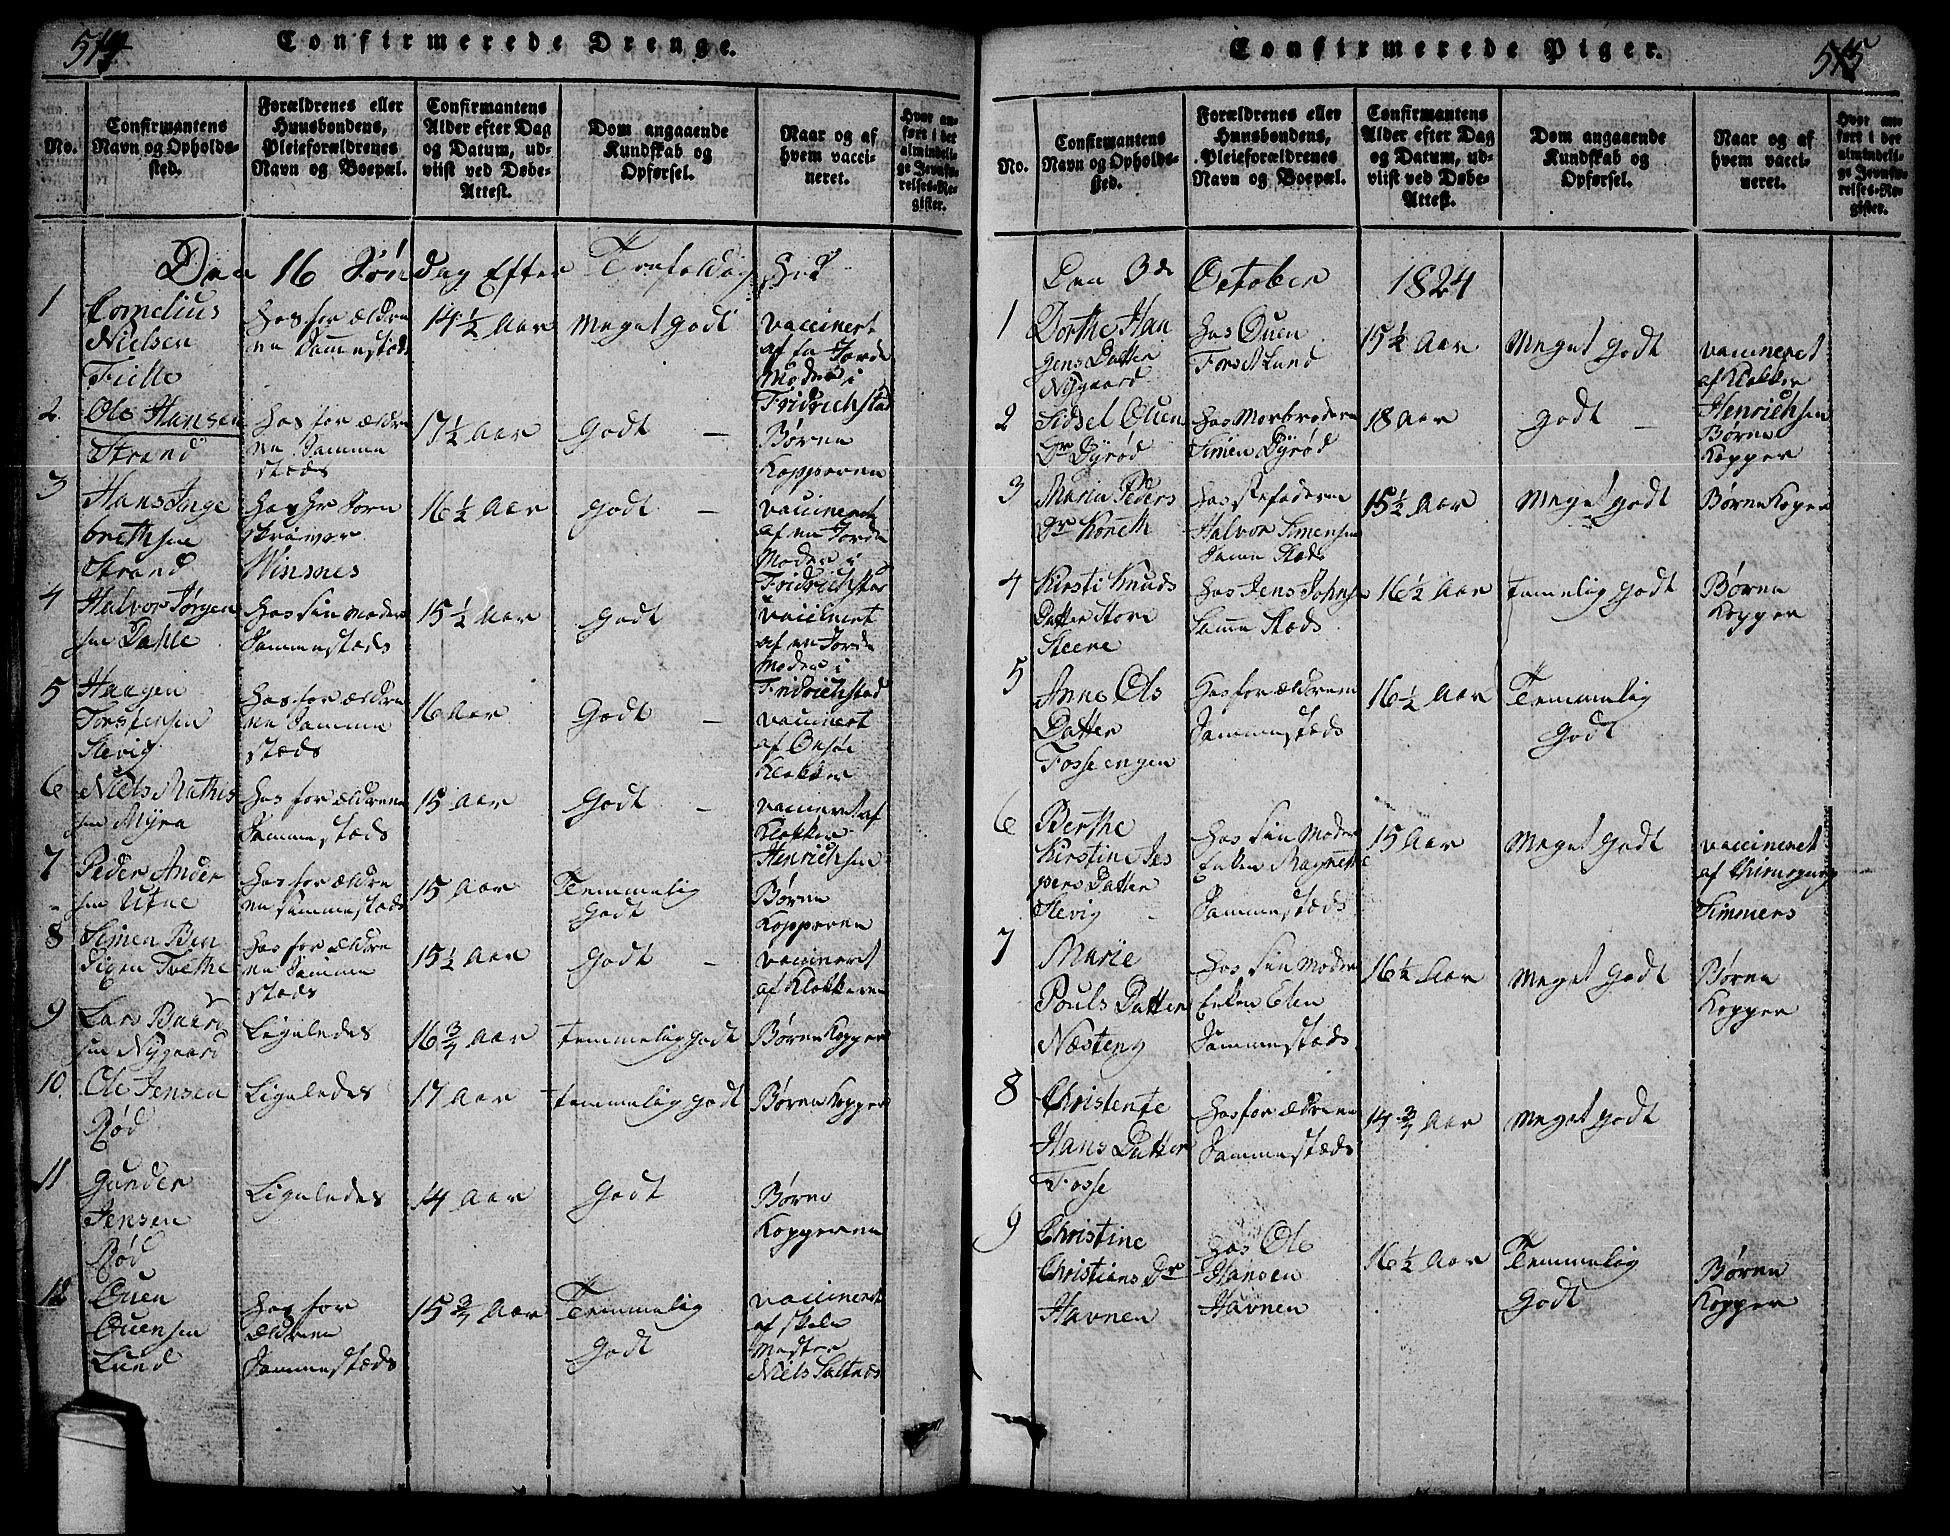 514
Confirmerede Drenge.
No.
Confirmantens
Navn og Opholds-
sted.
Forældrenes eller
Huusbondens,
Pleieforældrenes
Navn og Boepæl.
Confirmantens
Alder efter Dag
og Datum, ud-
viist ved Døbe-
Attest.
Dom angaaende
Kundskab og
Opførsel.
Naar og af
hvem vacci-
neret.
Hvor an-
ført i det
almindeli-
ge Jevnfø-
relses-Re-
gister.
Den 16 Søndag Efter Trefoldig
1
Cornelius
Nielsen
Hos for ældre
ne Sammesteds
14 1/2 Aar
Meget Godt
vaccinert
af en Jorde
Moder i
Fridrichstad
2
Ole Hansen
Strand
Hos for ældre
ne Samme
stæds
17 1/2 Aar
Godt —
Børne
Kopperne
3
Hans Inge
brethsen
Strand
Hos Hr Sorn
skriver
Winsnes
16 1/2 Aar
Godt —
vaccineret
af en Jorde
Moder i
Fridrichstad
4
Halvor Jørgen
sen Dahle
Hos Sin Moder
Sammestæds
15 1/2 Aar
Godt
vaccineret
af en Jorde
Moder i
Fridrichstad
5
Haagen
Torstensen
Slevig
Hos for ældre
ne Samme
stæds
16 Aar
Godt —
vaccinert
af Onsøe
Klokker
6
Niels Mathis
sen Myra
Hos for ældrene
Sammestæds
15 Aar
Godt —
vaccineret af
Klokker
Henrichsen
7
Peder Ander
sen Utne
Hos for ældre
ne sammestæds
15 Aar
Temmelig
Godt
Børne
Kopperne
8
Simen Ben
digen Tvethe
Hos for ældre
ne Samme
stæds
15 1/2 Aar
Godt —
vaccineret
af Klokkeren
9
Lars Baard
sen Nygaard
Ligeledes
16 3/4 Aar
temmelig godt
Børne Kopper
10.
Ole Jensen
Rød
Ligeledes
17 Aar
temmelig godt
Børne Kopper
11
Gunder
Jensen
Rød
Ligeledes
14 Aar
Godt
Børne
Kopperne
12
Ouen
Ouensen
Lund
Hos for
ældrene
Sammestæds
15 3/4 Aar
Temmelig
Godt
vaccinert
af Skole
Mester
Niels Saltnes
515
Confirmerede Piger.
No.
Confirmantens
Navn og Opholds-
sted.
Forældrenes eller
Huusbondens,
Pleieforældrenes
Navn og Boepæl.
Confirmantens
Alder efter Dag
og Datum, ud-
viist ved Døbe-
Attest.
Dom angaaende
Kundskab og
Opførsel.
Naar og af
hvem vacci-
neret.
Hvor an-
ført i det
almindeli-
ge Jevnfø-
relses-Re-
gister.
Den 3de October 1824
1
Dorthe Haa
gens Datter
Nygaard
Hos Ouen
Lund
15 1/2 Aar
Meget godt
vaccineret
af Klokker
Henrichsen
2
Sidsel Ouen
Dr Dyrød
Hos Morbroderen
Simen Dyrød
18 Aar
godt —
Børne
Kopper
3
Maria Peders
Dr Koneth
Hos stefaderen
Halvor Simensen
Samme Stæds
15 1/2 Aar
Meget godt
Børne Koper
4
Kirsti Knuds
Datter Store
Steene
Hos Jens Johns
Samme Stæds
16 1/2 Aar
temelig godt
Børne
Kopper
5
Anne Ols
Datter
Fosse engen
Hos for ældrene
Sammestæds
16 1/2 Aar
Temmelig
Godt
6
Berthe
Kirstine Jes
pers Datter
Slevig
Hos Sin Moder
Enken Ragnethe
Sammestæds
15 Aar
Meget Godt
vaccineret
af Chirurgus
Simmers
7
Marie
Pouls Datter
Næsteng
Hos Sin Moder
Enken Elen
Sammestæds
16 1/2 Aar
Meget Godt
Børne
Kopper
8
Christente
Hans Datter
Fosse
Hos for ældrene
Sammestæds
14 3/4 Aar
Meget Godt
9
Christine
Christians Dr
Havnen
Hos Ole
Hansen
Havnen
16 1/2 Aar
Temmelig
Godt
Børne
Kopper